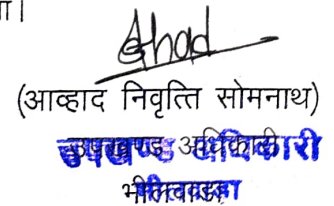 ा।
(आव्हाद निवृत्ति सोमनाथ)
उपखण्ड अधिकारी
भीलवाडा